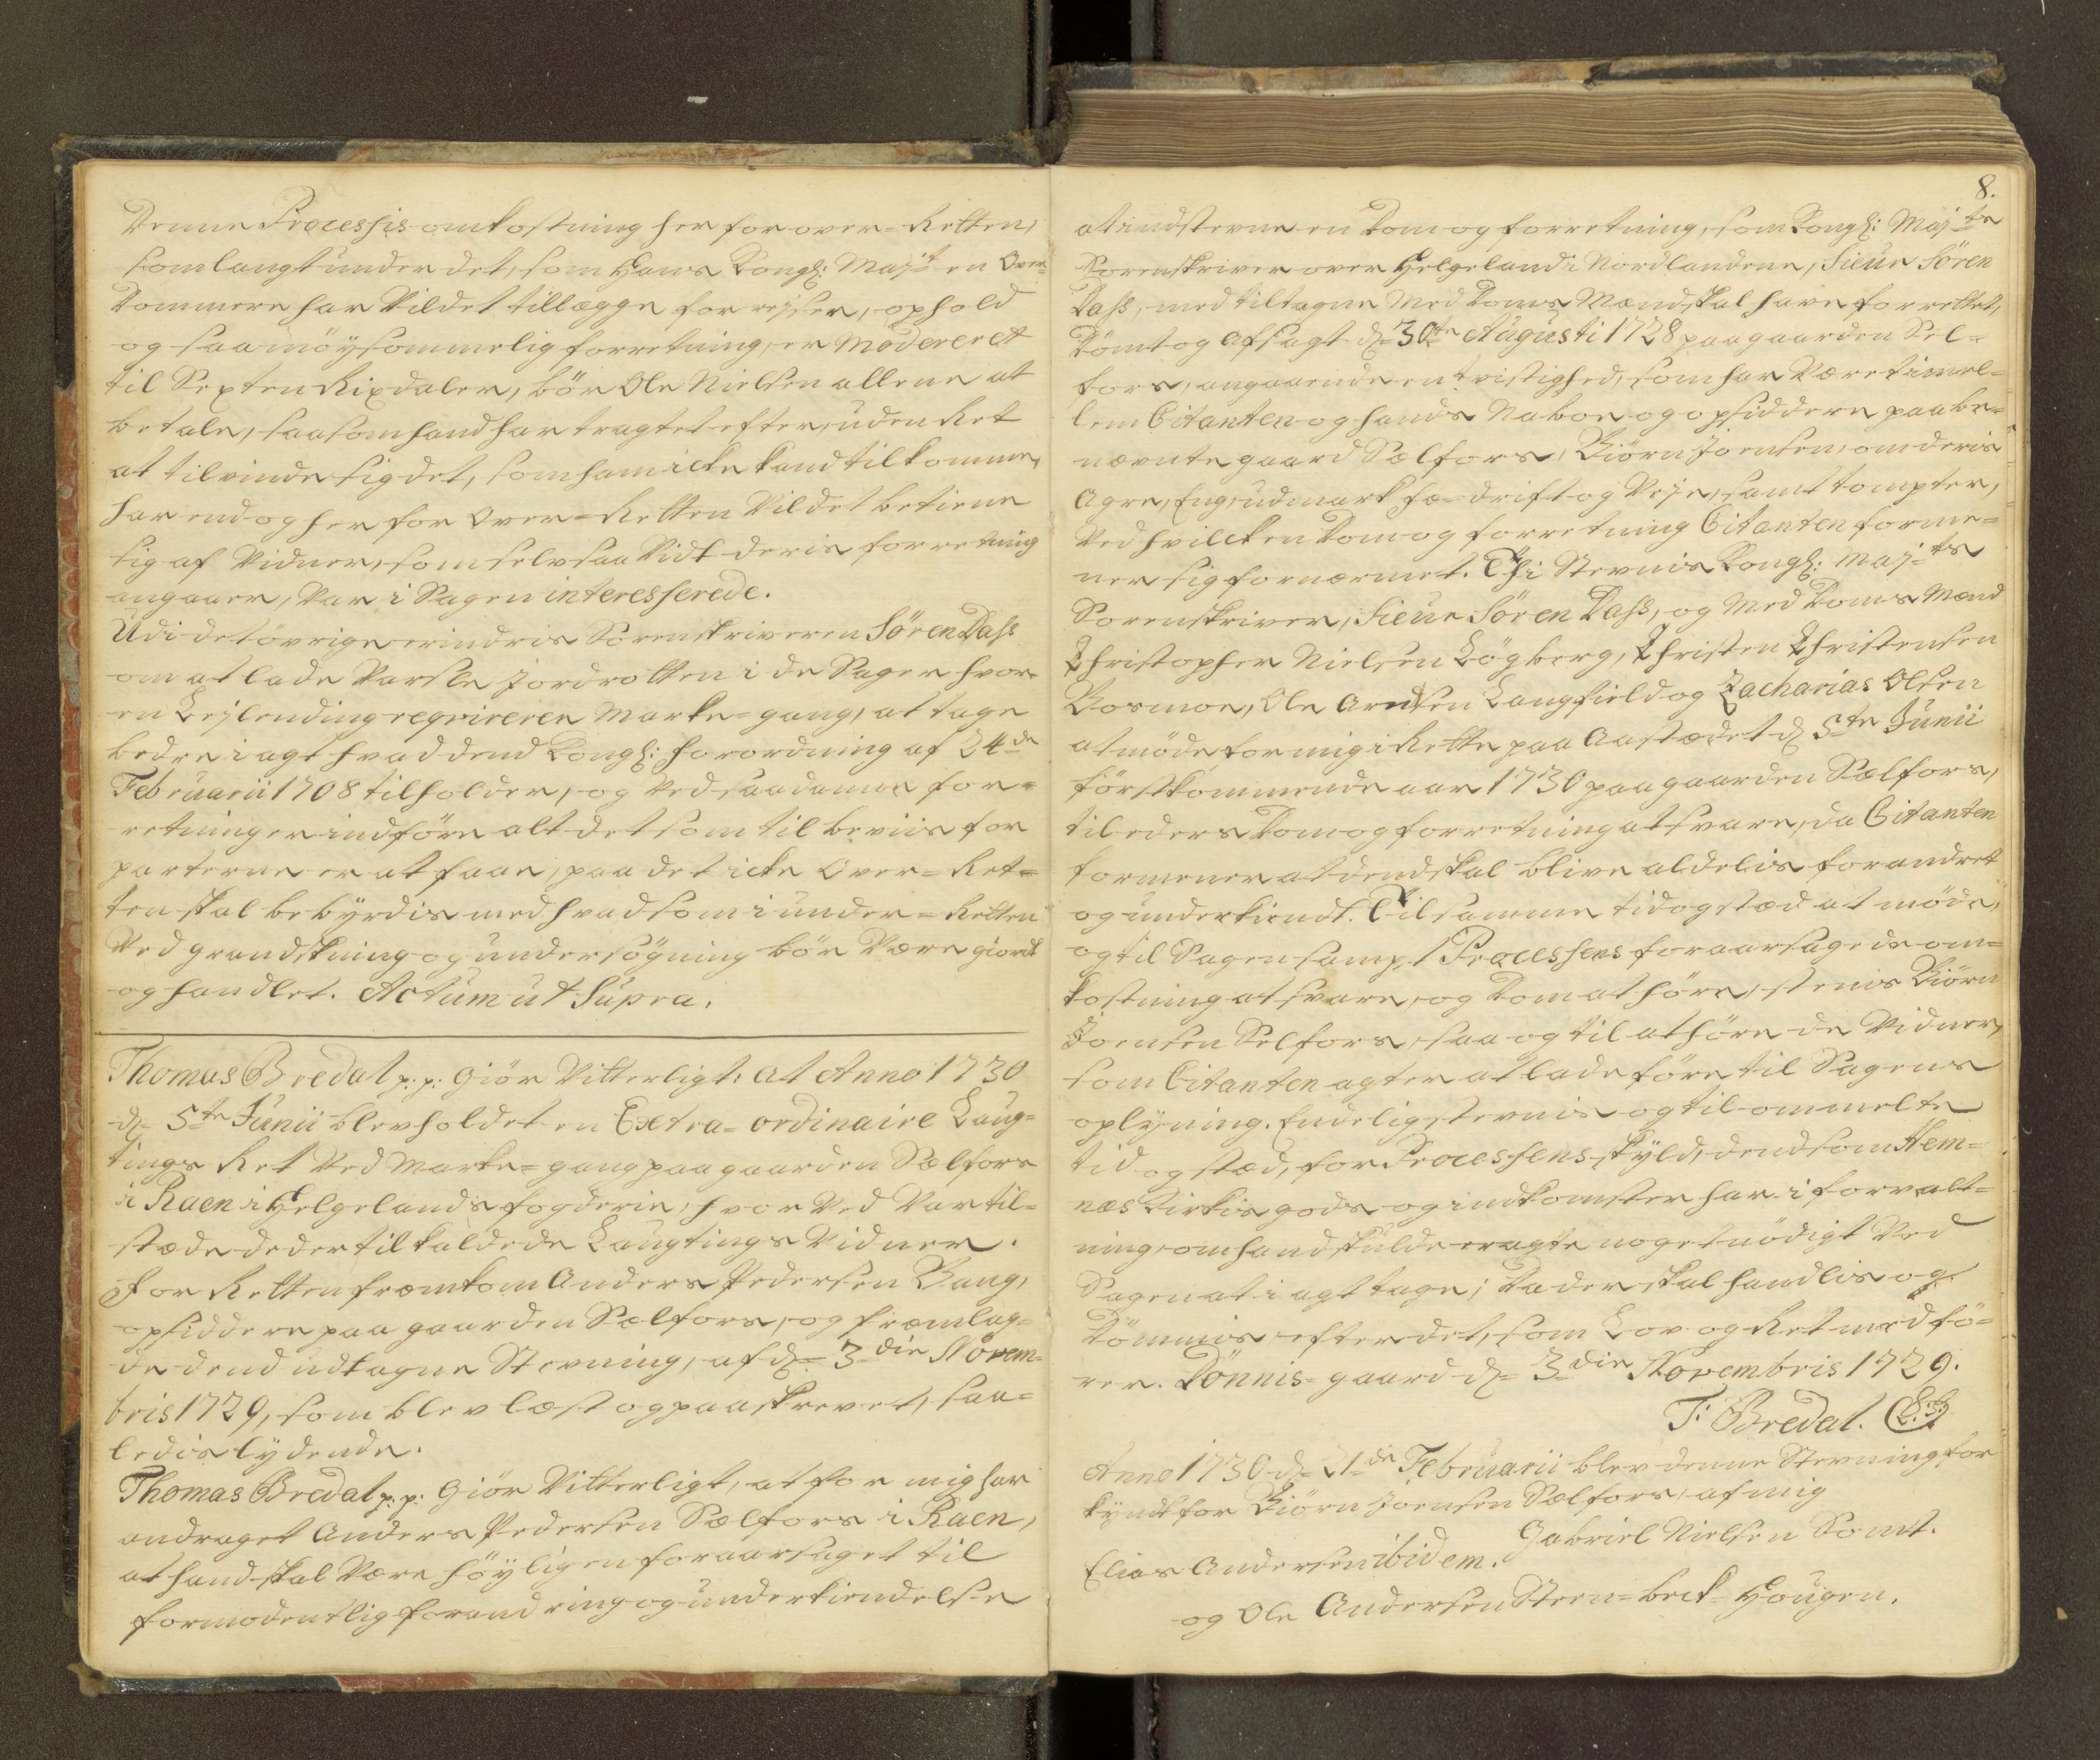 Denne Processis omkostning her for over-Retten,
som langt under det, som Hans Kongl: Majt en Over-
Dommere har Vildet tillægge for rejser, ophold
og saa möysommelig forretning, er Modereret
til Sexten Rixdaler, bör Ole Nielsen allene at
betale, saasom hand har tragtet efter, uden Ret
at tilvinde sig det, som ham icke kand tilkomme,
har endog her for Over-Retten Vildet betiene
sig af Vidner, som selv saa Vidt deris forretning
angaaer, Var i Sagen interesserede.
Udi det övrige erindris Sorenskriveren Sören Dass
om at lade Varsle Jordrotten i de Sager hvor
en Lejlending reqvirerer Marke-gang, at tage
bedre i agt hvad dend Kongl: Forordning af 24de
Februarii 1708 tilholder, og Ved saadanne for-
retninger indföre alt det som til beviis for
parterne er at faae, paa det icke Over-Ret-
ten skal bebyrdis med hvad som i under-Retten
Ved grandskning og undersögning bör Være giordt
og handlet. Actum ut Supra.
Thomas Bredal p: p: Giör Vitterligt: At Anno 1730
d: 5te Junii blev holdet en Extra-ordinaire Laug-
tings Ret Ved Marke-gang paa gaarden Sælfors
i Raen i Helgelands fogderie, hvor Ved Var til-
stæde de dertil kaldede Laugtings Vidner.
For Retten fræmkom Anders Pedersen Bang,
opsiddere paa gaarden Sælfors, og fræmlag-
de dend udtagne Stevning, af d: 3die Novem-
bris 1729, som blev læst og paaskrevet, saa-
ledis lydende.
Thomas Bredal p: p: Giör Vitterligt, at for mig har
andraget Anders Pedersen Sælfors i Raen,
at hand skal Være höyligen foraarsaget til
formodentlig forandring og underkiendelse
8.
at indstevne en Dom og forretning, som Kongl: Majts
Sorenskriver over Helgeland i Nordlandene, Sieur Sören
Dass, med tiltagne Med Doms Mænd skal have forrettet,
Dömt og Afsagt d: 30te Augusti 1728 paa gaarden Sel-
fors, angaaende en tvistighed, som har Været imel-
lem Citanten og hands Naboe og opsiddere paa be-
nævnte gaard Sælfors, Biörn Joensen, om deris
Agre, Eng, udmark fæ-drift og Veje, samt tompter,
Ved hvilcken Dom og forretning Citanten forme-
ner sig fornærmet. Thi Stevnis Kongl: Majts
Sorenskriver, Sieur Sören Dass, og Med Doms Mænd
Christopher Nielsen Lögberg, Christen Christensen
Bosmoe, Ole Arntsen Langfield og Zacharias Olsen
at möde for mig i Rette paa Aastædet d: 5te Junii
förstkommende aar 1730 paa gaarden Sælfors,
til eders Dom og forretning at svare, da Citanten
formener at dend skal blive aldelis forandret
og underkiendt. Til samme tid og stæd at möde,
og til Sagen samt Processens foraarsagede om-
kostning at svare, og Dom at höre, stevnis Biörn
Joensen Selfors, saa og til at höre de Vidner,
som Citanten agter at lade före til Sagens
oplysning. Endelig stevnis og til ommelte
tid og stæd, for Processens skyld, dend som Hem-
næs Kirkis gods og indkomster har i forvalt-
ning, om hand skulde eragte noget nödigt Ved
Sagen at i agt tage; Da der skal handlis og
Dömmis efter det, som Lov og Ret medfö-
rer. Dönnis-gaard d: 3die Novembris 1729.
T: Bredal. (L.S.)
Anno 1730 d: 21de Februarii blev denne Stevning for-
kyndt for Biörn Joensen Sælfors, af mig
Gabriel Nielsen Somt.
Elias Andersen ibidem.
og Ole Andersen Steen-beck-Hougen.